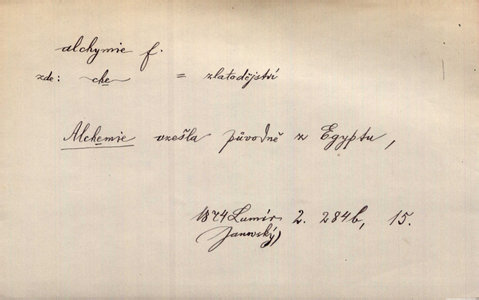 alchymie f.
zde: che = zlatodějství
Alchemie vzešla původně z Egyptu,
1874 Lumír 2. 284b, 15.
Janovský)